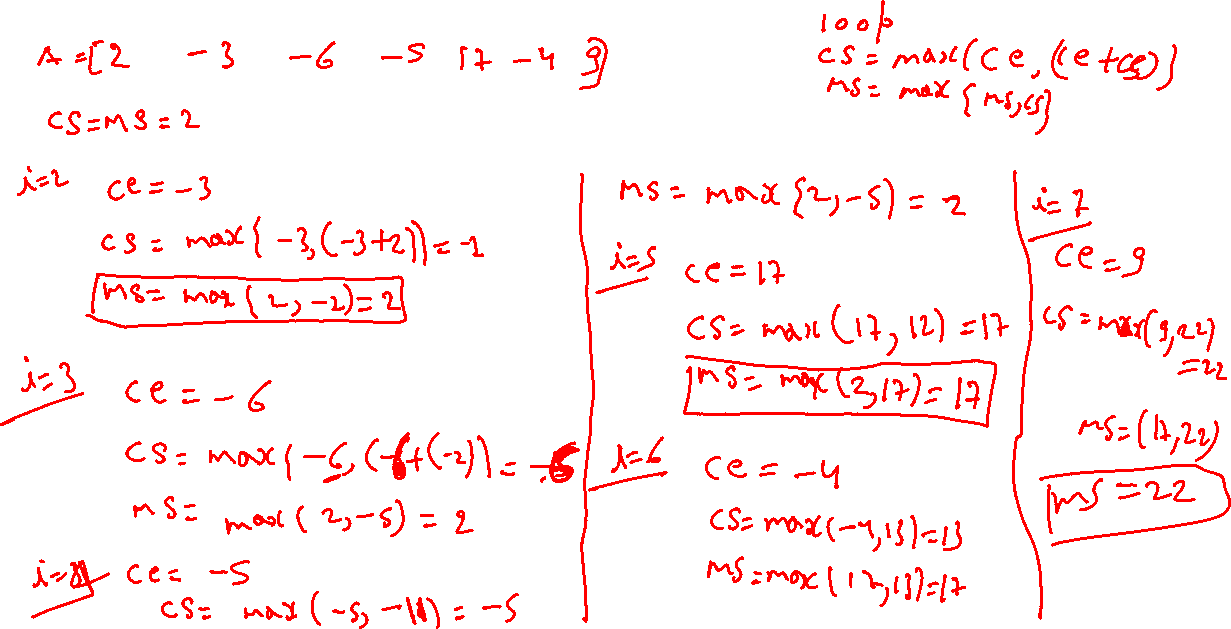 A = [2 -3 -6 -5 17 -4 9]
loop
CS = max(ce, (ce+cs)}
MS = max {ms,cs}
CS=MS=2
i=2 ce = -3
cs = max{ -3,(-3+2)}=-1
ms= max ( 2, -2)=2
i=3 ce = -6
CS= max{ -6, (-6+(-2)) = -6
MS= max( 2,-5) = 2
ce= -5
CS= max (-5, -11) = -5
MS = max {2,-5) = 2
i=5 ce=17
CS= max (17, 12) =17
MS= max(2,17)= 17
i=6 ce = -4
CS=max(-4,13)=13
MS=max(17,13)=17
i=7
ce=9
CS=max(9,22)
=22
MS=(17,22)
MS =22